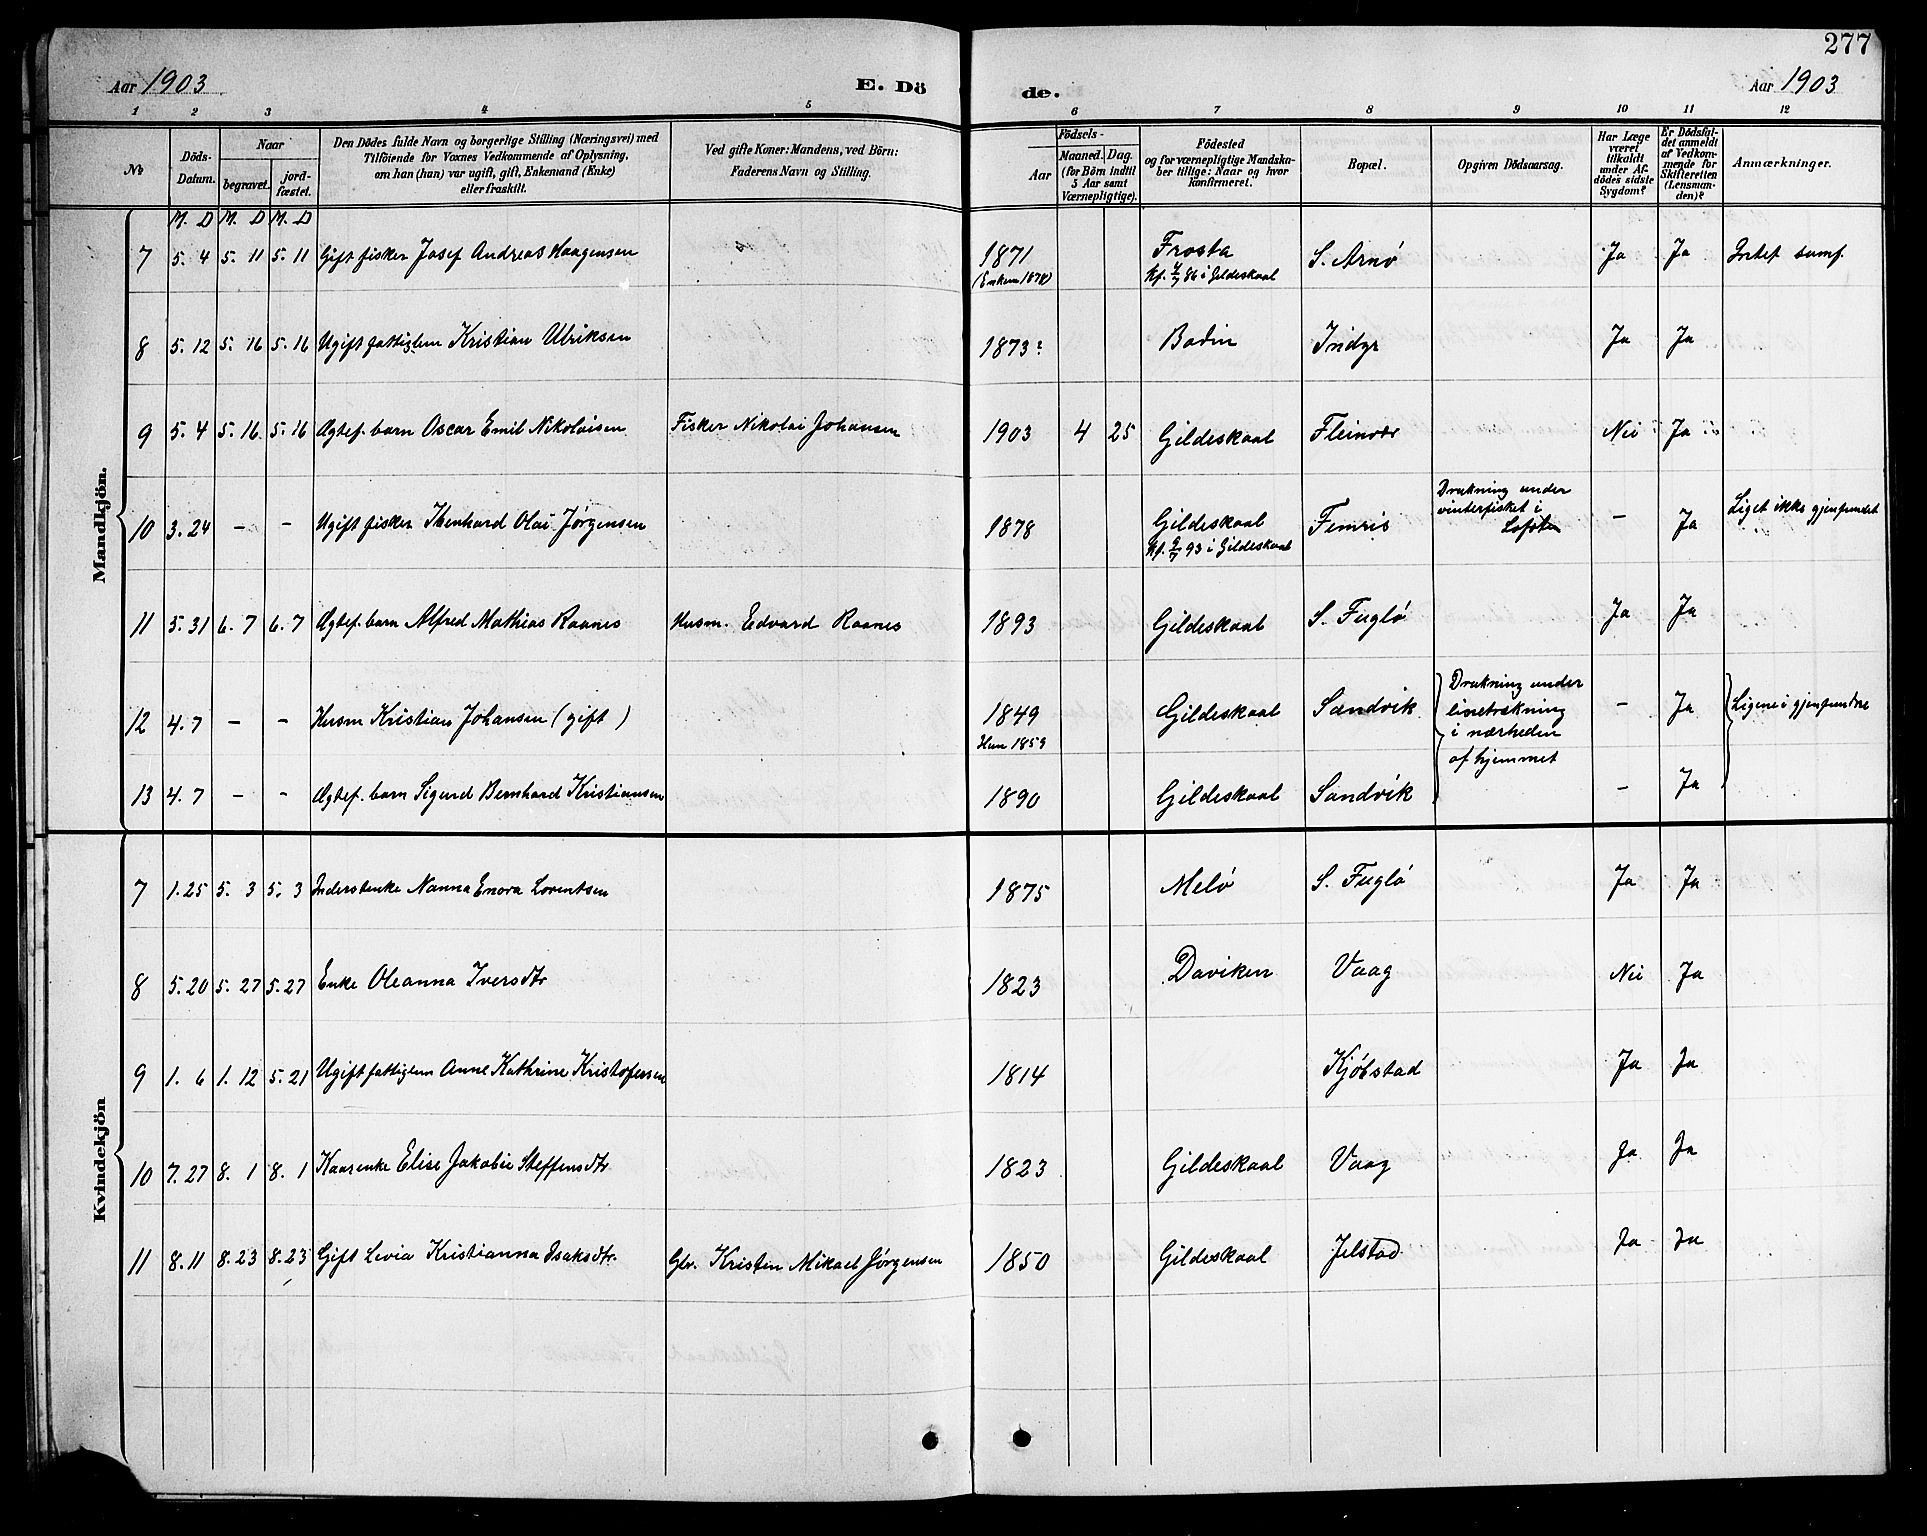 277
Aar 1903
E. Dö
de.
Aar 1903
1 2 3 4 5 6 7 8 9 10 11 12
№
Döds-
Datum.
Naar
begravet.
jord-
fæstet.
Den Dödes fulde Navn og borgerlige Stilling (Næringsvei) med
Tilföiende for Voxnes Vedkommende af Oplysning,
om han (hun) var ugift, gift, Enkemand (Enke)
eller fraskilt.
Ved gifte Koner: Mandens, ved Börn:
Faderens Navn og Stilling.
Födsels-
Aar
Maaned. Dag.
(for Börn indtil
5 Aar samt
Værnepligtige).
Födested
og for værnepligtige Mandska-
ber tillige: Naar og hvor
konfirmeret.
Bopæl.
Opgiven Dödsaarsag.
Har Læge
været
tilkaldt
under Af-
dödes sidste
Sygdom?
Er Dödsfal-
det anmeldt
af Vedkom-
mende for
Skifteretten
(Lensman-
den)?
Anmærkninger.
M. D M. D M. D
Mandkjön.
7 5. 4 5. 11 5. 11 Gift fisker Josef Andreas Haagensen 1871 Frosta S. Arnø Ja Ja Intet samf.
(Enken 1878) Kf. 4/7 86 i Gildeskaal
8 5. 12 5. 16 5. 16 Ugift fattiglem Kristian Ulriksen 1873? Bodin Indyr Ja Ja
9 5. 4 5. 16 5. 16 Ægtef. barn Oscar Emil Nikolaisen Fisker Nikolai Johansen 1903 4 25 Gildeskaal Fleinvær Nei Ja
10 3. 24 - - Ugift fisker Ibenhard Olai Jørgensen 1878 Gildeskaal Femris Drukning under - Ja Liget ikke gjenfundet
Kf. 9/7 93 i Gildeskaal vinterfisket i
Lofoten
11 5. 31 6. 7 6. 7 Ægtef. barn Alfred Mathias Raanes Husm. Edvard Raanes 1893 Gildeskaal S. Fuglø Ja Ja
12 4. 7 - - Husm Kristian Johansen (gift) 1849 Gildeskaal Sandvik Drukning under - Ja Ligene i gjenfundne
Hun 1859 linetrækning
i nærheden
af hjemmet
13 4. 7 - - Ægtef. barn Sigurd Bernhard Kristiansen 1890 Gildeskaal Sandvik - Ja
Kvindekjön
7 1. 25 5. 3 5. 3 Inderstenke Nanna Enora Lorentsen 1875 Melø S. Fuglø Ja Ja
8 5. 20 5. 27 5. 27 Enke Oleanna Iversdtr 1823 Daviken Vaag Nei Ja
9 1. 6 1. 12 5. 21 Ugift fattiglem Anne Kathrine Kristofersen 1814 Kjøbstad Ja Ja
10 7. 27 8. 1 8. 1 Kaarenke Elise Jakobie Steffensdtr 1823 Gildeskaal Vaag Ja Ja
11 8. 11 8. 23 8. 23 Gift Levia Kristianna Isaksdtr. Gbr. Kristen Mikael Jørgensen 1850 Gildeskaal Jelstad Ja Ja